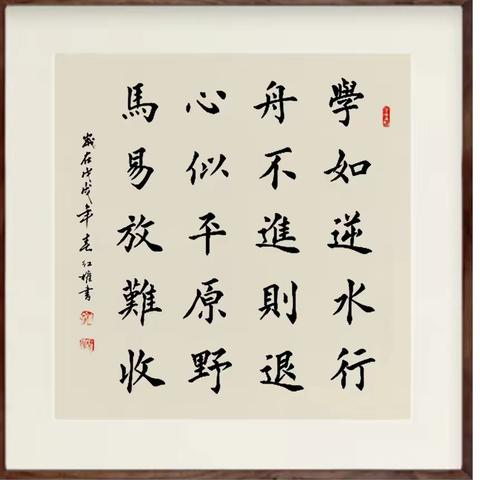 學如逆水行
舟不進則退
心似平原野
馬易放難收
歲在戊戌年春红雄書